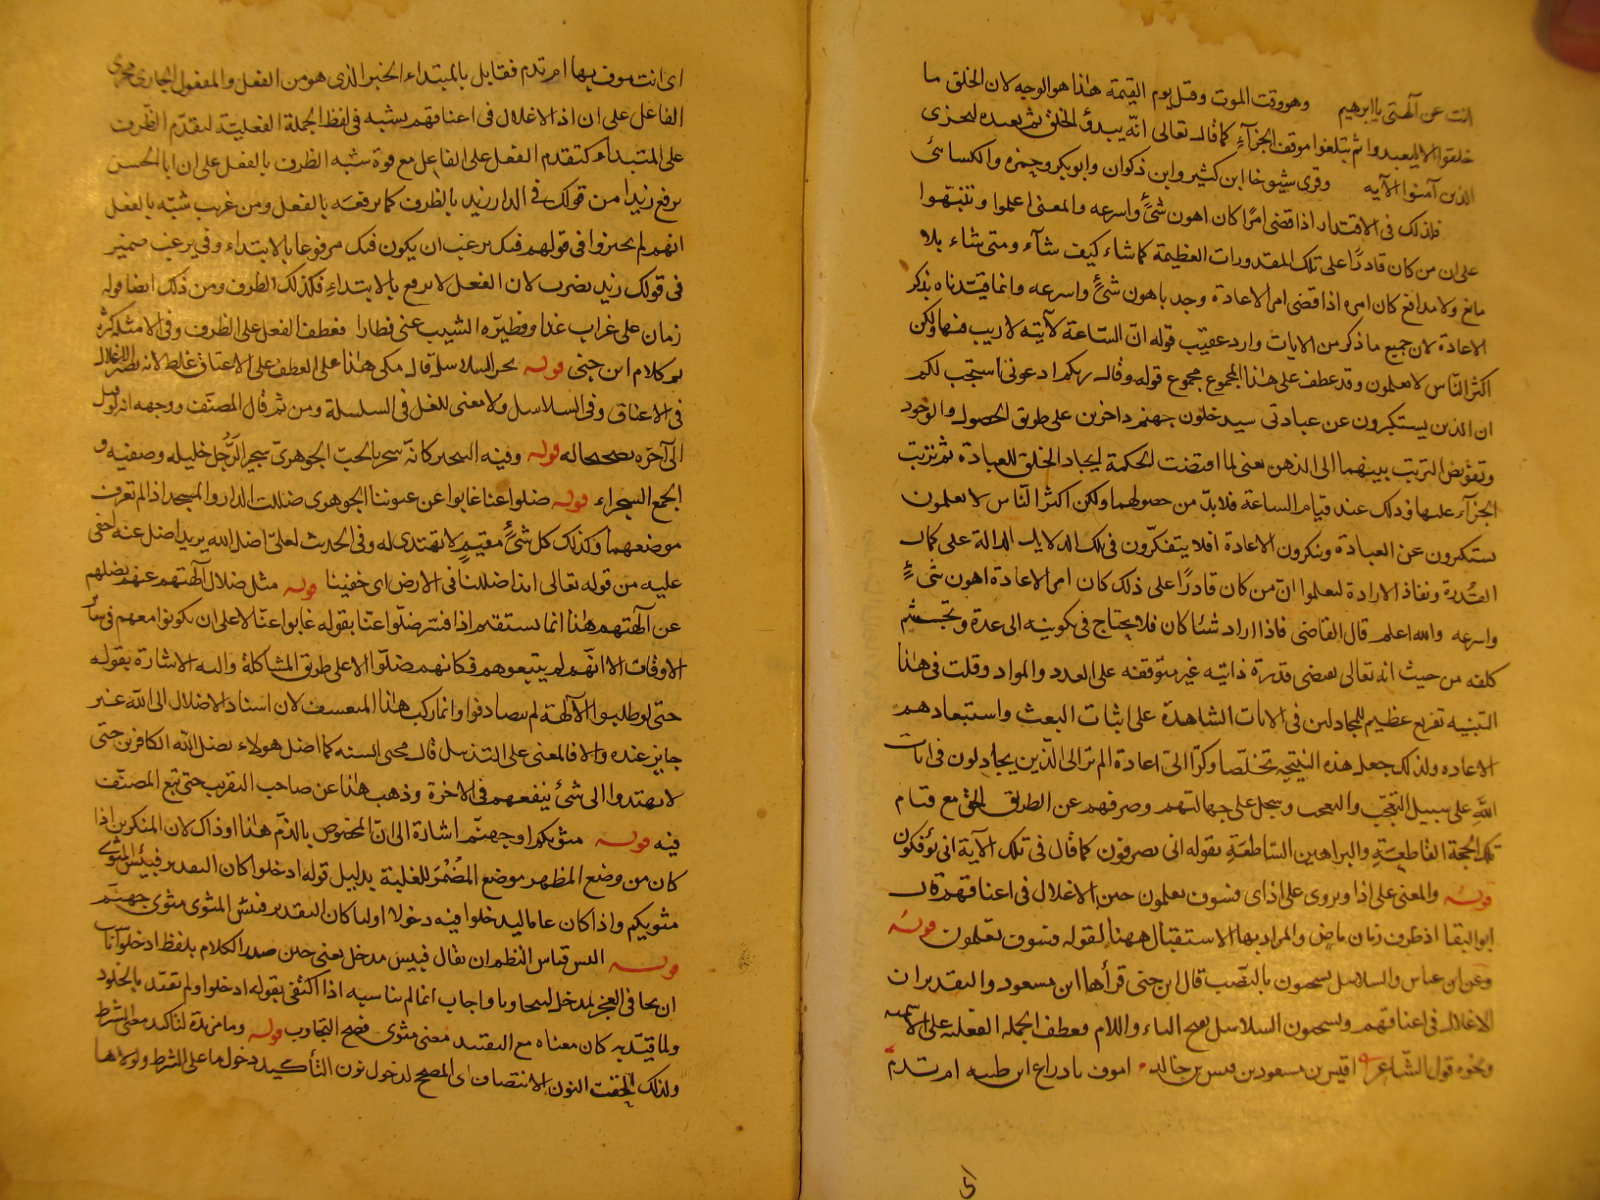 انت عن آلهتي يا ابرهيم وهو وقت الموت وقبل يوم القيمة هذا هو الوجه لان الخلق ما
خلقوا الا ليعبدوا ثم يبلغوا موقف الجزآء كما قال تعالى انه يبدؤ الخلق ثم يعيده ليجزى
الذين آمنوا الآيه وقرى شيوخا ابن كثير وابن ذكوان وابو بكر وحمزه والكسائى
فلذلك فى الاقتدار اذا قضى امرًا كان اهون شئ واسرعه والمعنى اعلموا وتنبهوا
على ان من كان قادرًا على تلك المقدورات العظيمة كما شاء كيف شآء ومتى شاء بلا
مانع ولا مدافع كان امره اذا قضى امر الاعادة وجد باهون شئ واسرعه وانما قيدناه بذكر
الاعادة لان جميع ما ذكر من الايات وارد عقيب قوله ان الساعة لآتيه لا ريب فيها ولكن
اكثر الناس لا يعلمون وقد عطف على هذا المجموع مجموع قوله وقال ربكم ادعونى استجب لكم
ان الذين يستكبرون عن عبادتى سيدخلون جهنم داخرين على طريق الحصول والوجود
وتفويض الترتب بينهما الى الذهن يعنى لما اقتضت الحكمة ايجاد الخلق للعبادة ثم ترتب
الجزآء عليها وذلك عند قيام الساعة فلا بد من حصولهما ولكن اكثر الناس لا يعلمون
يستكبرون عن العبادة وينكرون الاعادة افلا يتفكرون فى تلك الدلايل الدالة على كمال
القدرة ونفاذ الارادة ليعلموا ان من كان قادرًا على ذلك كان امر الاعادة اهون شئ
واسرعه والله اعلم قال القاضى فاذا اراد شئا كان فلا يحتاج فى تكوينه الى عدة وتجشم
كلفه من حيث انه تعالى يقتضى قدرة ذاتيه غير متوقفه على العدد والمواد وقلت فى هذا
التنبيه تقريع عظيم للمجادلين فى الايات الشاهدة على اثبات البعث واستبعادهم
الاعاده ولذلك جعل هذه النتيجه تخلصا وكرّا الى اعادة الم تر الى الذين يجادلون فى ايات
الله على سبيل التعجب والتعجيب وسجل على جهالتهم وصرفهم عن الطريق الحق مع قيام
تلك الحجة القاطعة والبراهين الساطعة بقوله انى يصرفون كما قال فى تلك الآية انى تؤفكون
قوله والمعنى على اذا ويروى على اذ اى فسوف يعلمون حين الاغلال فى اعناقهم قال
ابو البقا اذ ظرف زمان ماض والمراد بها الاستقبال ههنا لقوله فسوف يعلمون قوله
وعن ابن عباس والسلاسل يسحبون بالنصب قال ابن جنى قرأها ابن مسعود والتقدير ان
الاغلال فى اعناقهم ويسحبون السلاسل بفتح الياء واللام فعطف الجمله الفعليه على الاسميه
ونحوه قول الشاعر اقيس بن مسعود بن قيس بن خالد اموف بادراع ابن طيبه ام تذم
اى انت موف بها ام تذم فقابل بالمبتداء الخبر الذى هو من الفعل والمفعول الجارى مجرى
الفاعل على ان اذ الاغلال فى اعناقهم يشبه فى لفظ الجملة الفعلية لتقدم الظرف
على المتبداء كتقدم الفعل على الفاعل مع قوة شبه الظرف بالفعل على ان ابا الحسن
يرفع زيدا من قولك فى الدار زيد بالظرف كما يرفعه بالفعل ومن غريب شبه بالفعل
انهم لم يجيزوا فى قولهم فيك يرغب ان يكون فيك مرفوعا بالابتداء وفى يرغب ضمير
فى قولك زيد يضرب لان الفعل لا يرفع بالابتداء فكذلك الظرف ومن ذلك ايضا قوله
زمان على غراب غداف فطيره الشيب عنى فطارا فعطف الفعل على الظرف وفى الامثله كثرة
تم كلام ابن جنى قوله بحر السلاسل قال مكى هذا على العطف على الاعناق غلط لانه يصير الاغلال
فى الاعناق وفى السلاسل ولا معنى للغل فى السلسلة ومن ثم قال المصنف ووجهه انه لو قيل
الى آخره تصحيحا له قوله وفيه السجير كانه سجر بالحب الجوهرى سجير الرجل خليله وصفيه و
الجمع السجراء قوله ضلوا عنا غابوا عن عيوننا الجوهرى ضللت الدار والمسجد اذا لم تعرف
موضعهما وكذلك كل شئ مقيم لا يهتدى له وفى الحديث لعلى اضل الله يريد اضل عنه اخفى
عليه من قوله تعالى ائذا ضللنا فى الارض اى خفينا قوله مثل ضلال آلهتهم عنهم يضلهم
عن آلهتهم هذا انما يستقيم اذا فسر ضلوا عنا بقوله غابوا عنا لا على ان يكونوا معهم فى ساير
الاوقات الا انهم لم يتبعوهم فكانهم ضلوا الا على طريق المشاكلة واليه الاشارة بقوله
حتى لو طلبوا الآلهة لم يتصادفوا وانما ركب هذا المتعسف لان اسناد الاضلال الى الله غير
جايز عنده والا فالمعنى على التذييل قال محيى السنه كما اضل هولاء يضل الله الكافرين حتى
لا يهتدوا الى شئ ينفعهم فى الاخرة وذهب هذا عن صاحب التقريب حتى تبع المصنف
فيه قوله مثويكم او جهنم اشارة الى ان المخصوص بالذم هذا او ذاك لان المنكرين اذا
كان من وضع المظهر موضع المضمر للغلبة بدليل قوله ادخلوا كان التقدير فبئس المثوى
مثويكم واذا كان عاما ليدخلوا فيه دخولا اوليا كان التقدير فبئس المثوى مثوى جهنم
قوله اليس قياس النظم ان يقال فبيس مدخل يعنى حين صدر الكلام بلفظ ادخلوا
ان يجا فى العجز بمدخل ليتجاوبا واجاب انما لم يناسبه اذا اكتفى بقوله ادخلوا ولم تقيد بالخلود
ولما قيد به كان معناه مع التقييد معنى مثوى فصح التجاوب قوله وما مزيدة لتاكيد معنى الشرط
ولذلك الحقت النون الانتصاف اى المصحح لدخول نون التأكيد دخول ما على الشرط ولولاها